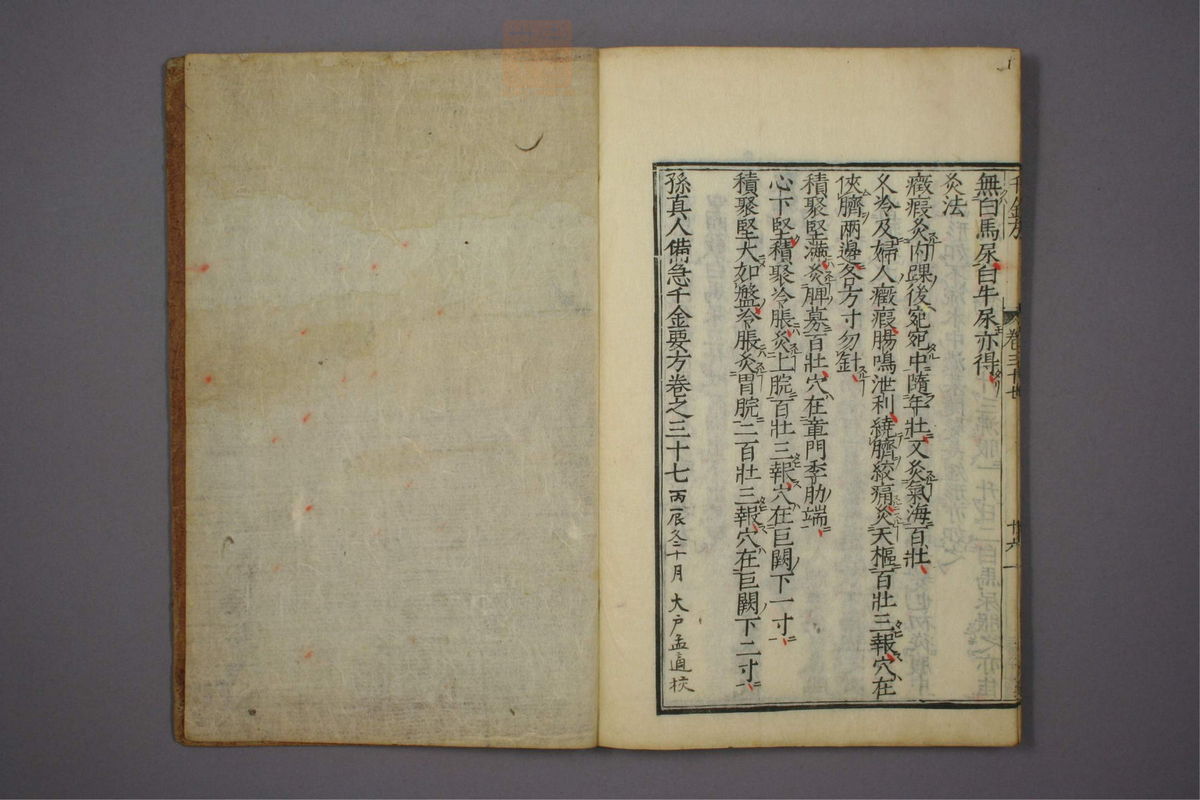 千金方 卷三十七 十六
無白馬尿白牛尿亦得
灸法
癥瘕灸内踝後宛宛中隨年壯又灸氣海百壯
久冷及婦人癥瘕腸鳴泄利繞臍絞痛灸天樞百壯三報穴在
俠臍兩邊各方寸勿針
積聚堅滿灸脾募百壯穴在章門季肋端
心下堅積聚冷脹灸上脘百壯三報穴在巨闕下一寸
積聚堅大如盤冷脹灸胃脘二百壯三報穴在巨闕下二寸
孫真人備急千金要方卷之三十七 丙辰冬十月 大戸孟通校